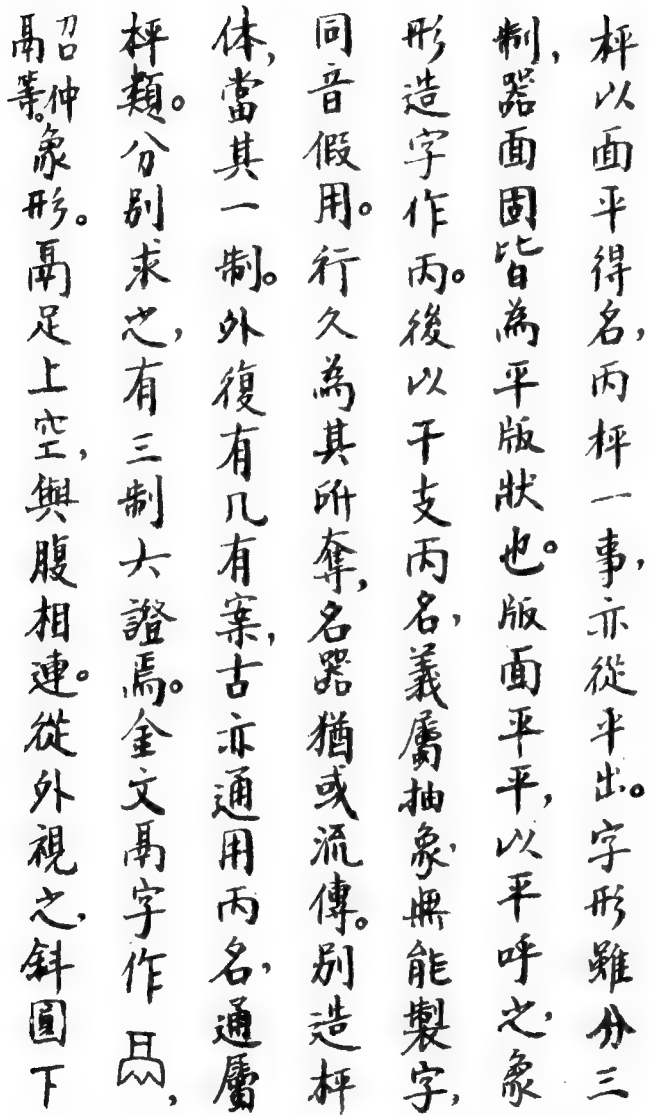 枰以面平得名，丙枰一事，亦從平出。字形雖分三
制，器面固皆為平版狀也。版面平平，以平呼之，象
形造字作丙。後以干支丙名，義屬抽象，無能製字，
同音假用。行久為其所奪，名器猶或流傳。別造枰
体，當其一制。外復有几有案，古亦通用丙名，通屬
枰類。分別求之，有三制六證焉。金文鬲字作，
召仲鬲等。象形。鬲足上空，與腹相連。從外視之，斜圓下